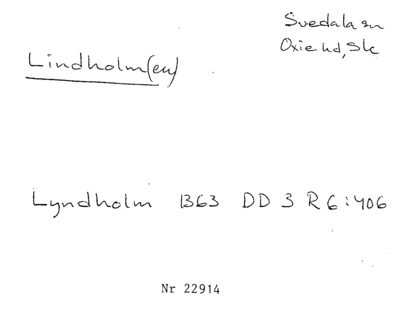 Svedala sn
Oxie hd, Sk
Lindholm(en)
Lyndholm 1363 DD 3 R 6:406
Nr 22914